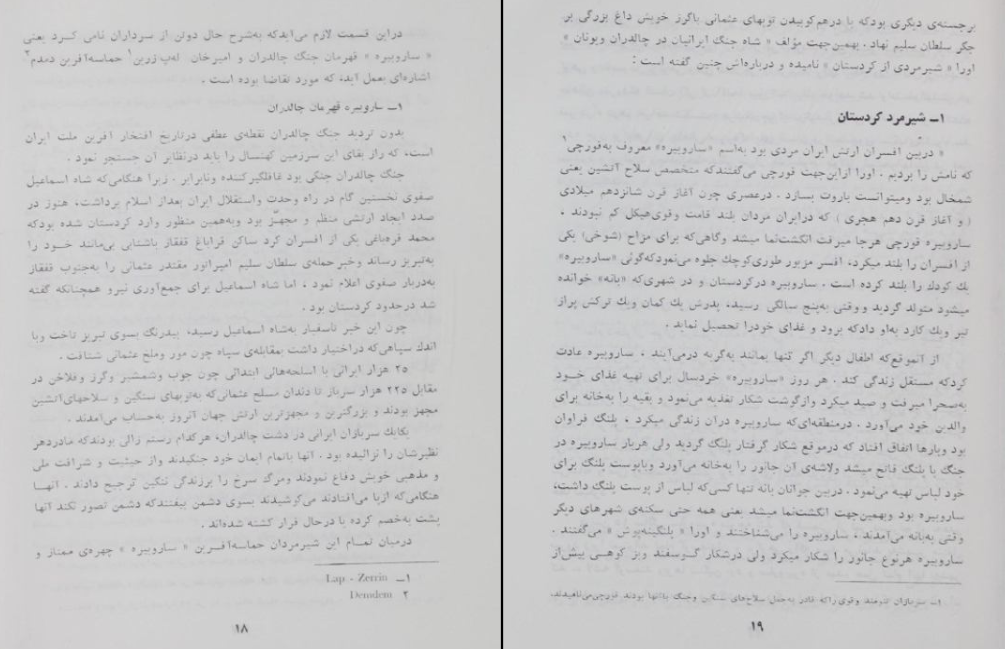 دراین قسمت لازم می‌آیدکه به‌شرح حال دوتن از سرداران نامی کرد یعنی
« ساروبیره » قهرمان جنگ چالدران و امیرخان له‌پ زرین۱ حماسه‌آفرین دمدم۲
اشاره‌ای بعمل آید، که مورد تقاضا بوده است .
۱ــ ساروبیره قهرمان چالدران
بدون تردید جنگ چالدران نقطه‌ی عطفی درتاریخ افتخار آفرین ملت ایران
است، که راز بقای این سرزمین کهنسال را باید درنظایر آن جستجو نمود .
جنگ چالدران جنگی بود غافلگیرکننده ونابرابر . زیرا هنگامی‌که شاه اسماعیل
صفوی نخستین گام در راه وحدت واستقلال ایران بعداز اسلام برداشت، هنوز در
صدد ایجاد ارتشی منظم و مجهـّز بود وبه‌همین منظور وارد کردستان شده بودکه
محمد قره‌باغی یکی از افسران کرد ساکن قراباغ قفقاز باشتابی بی‌مانند خـود را
به‌تبریز رساند وخبرحمله‌ی سلطان سلیم امپراتور مقتدر عثمانی را به‌جنوب قفقاز
به‌دربار صفوی اعلام نمود ، اما شاه اسماعیل برای جمع‌آوری نیرو همچنانکه گفته
شد درحدود کردستان بود .
چون این خبر تاسفبار به‌شاه اسماعیل رسید، بیدرنگ بسوی تبریز تاخت وبا
اندك سپاهی‌که دراختیار داشت بمقابله‌ی سپاه چون مور وملخ عثمانی شتافت .
۲۵ هزار ایرانی با اسلحه‌هائی ابتدائی چون چوب وشمشیر وگرز وفلاخن در
مقابل ۲۲۵ هزار سرباز تا دندان مسلح عثمانی‌که به‌توپهای سنگین و سلاحهای‌آتشین
مجهز بودند و بزرگترین و مجهزترین ارتش جهان آنروز به‌حساب می‌آمدند .
یکایك سربازان ایرانی در دشت چالدران، هرکدام رستم زالی بودندکه مادردهر
نظیرشان را نزائیده بود . آنها باتمام ایمان خود جنگیدند واز حیثیت و شرافت ملی
و مذهبی خویش دفاع نمودند ومرگ سرخ را برزندگی ننگین ترجیح دادند . آنهـا
هنگامی‌که ازپا می‌افتادند می‌کوشیدند بسوی دشمن بیفتندکه دشمن تصور نکند آنها
پشت به‌خصم کرده یا درحال فرار کشته شده‌اند .
درمیان تمـام این شیرمردان حماسه‌آفـرین « ساروبیره » چهره‌ی ممتاز و
۱ــ Lap - Zerrin
۲ Demdem
۱۸
برجسته‌ی دیگری بودکه با درهم‌کوبیدن توپهای عثمانی باگرز خویش داغ بزرگی بر
جگر سلطان سلیم نهاد . بهمین‌جهت مؤلف « شاه جنگ ایرانیان در چالدران ویونان »
اورا « شیرمردی از کردستان » نامیده و درباره‌اش چنین گفته است :
۱ــ شیرمرد کردستان
« دربین افسران ارتش ایران مردی بود به‌اسم «ساروبیره» معروف به‌قورچی۱
که نامش را بردیم . اورا ازاین‌جهت قورچی می‌گفتندکه متخصص سلاح آتشین یعنی
شمخال بود ومیتوانست باروت بسازد . درعصری چون آغاز قرن شانزدهم میلادی
( و آغاز قرن دهم هجری ) که درایران مردان بلند قامت وقوی‌هیکل کم نبودند ،
ساروبیره قورچی هرجا میرفت انگشت‌نما میشد وگاهی‌که برای مزاح (شوخی) یکی
از افسران را بلند میکرد، افسر مزبور طوری‌کوچك جلوه می‌نمودکه‌گوئی «ساروبیره»
یك کودك را بلند کرده است . ساروبیره درکردستان و در شهری‌که «بانه» خوانده
میشود متولد گردید و وقتی به‌پنج سالگی رسید، پدرش یك کمان ویك ترکش پراز
تیر ویك کارد به‌او دادکه برود و غذای خودرا تحصیل نماید .
از آنموقع‌که اطفال دیگر اگر تنها بمانند به‌گریه درمی‌آیند ، ساروبیره عادت
کردکه مستقل زندگی کند . هر روز «ساروبیره» خردسال برای تهیه غذای خـود
به‌صحرا میرفت و صید میکرد وازگوشت شکار تغذیه می‌نمود و بقیه را به‌خانه برای
والدین خود می‌آورد . درمنطقه‌ای‌که ساروبیره درآن زندگی میکرد ، پلنگ فراوان
بود وبارها اتفاق افتاد که درموقع شکار گرفتار پلنگ گردید ولی هربار ساروبیره در
جنگ با پلنگ فاتح میشد ولاشه‌ی آن جانور را به‌خانه می‌آورد وباپوست پلنگ برای
خود لباس تهیه می‌نمود . دربین جوانان بانه تنها کسی‌که لباس از پوست پلنگ داشت،
ساروبیره بود وبهمین‌جهت انگشت‌نما میشد یعنی همه حتی سکنه‌ی شهرهای دیگر
وقتی به‌بانه می‌آمدند ، ساروبیره را می‌شناختند و اورا « پلنگینه‌پوش » می‌گفتند .
ساروبیره هرنوع جانور را شکار میکرد ولی درشکار گـوسفند وبز کوهـی بیش‌از
۱ــ سربازان نیرومند وقوی راکه قادر به‌حمل سلاح‌های سنگین وجنگ باآنها بودند قورچی‌می‌نامیدند.
۱۹